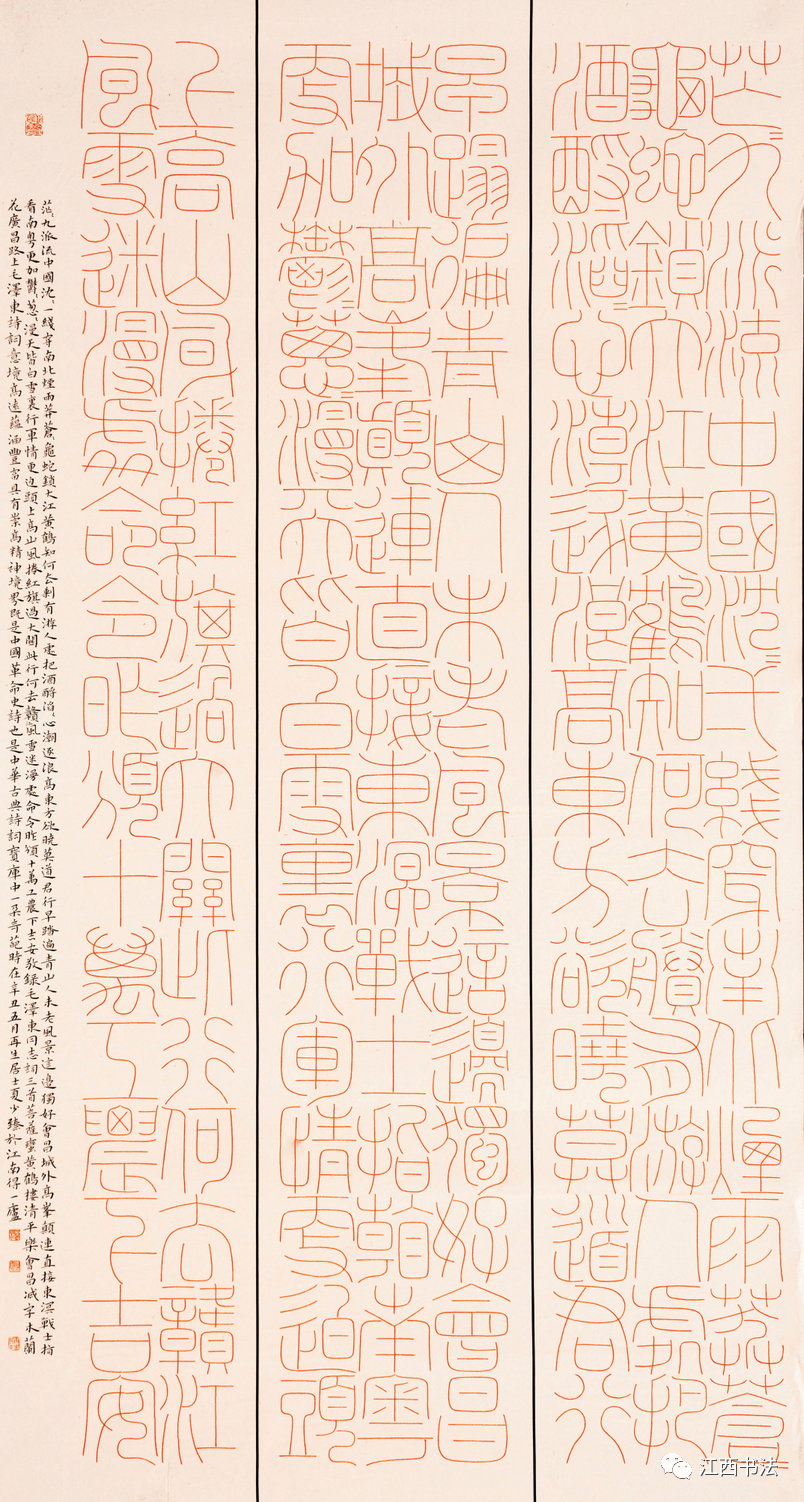 茫〻九派流中國沈〻弌綫穿南北煙雨莽蒼〻
龜蛇鎖大江黃鶴知何去賸有游人處把
酒酹滔〻心潮逐浪高東方欲曉莫道君行
早蹋遍青山人未老風景這邊獨好會昌
城外高峯顛連直接東溟戰士指看南粵
更加鬱〻蔥〻漫天皆白雪裏行軍情更迫頭
上高山風捲紅旗過大關此行何去贛江
風雪迷漫處命令昨頒十萬工農下吉安
茫〻九派流中國沈〻一綫穿南北煙雨莽蒼〻龜蛇鎖大江黃鶴知何去剩有游人處把酒酹滔〻心潮逐浪高東方欲曉莫道君行早踏遍青山人未老風景這邊獨好會昌城外高峯顛連直接東溟戰士指
看南粵更加鬱〻蔥〻漫天皆白雪裏行軍情更迫頭上高山風捲紅旗過大關此行何去贛風雪迷漫處命令昨頒十萬工農下吉安敬錄毛澤東同志詞三首菩薩蠻黃鶴樓清平樂會昌減字木蘭
花廣昌路上毛澤東詩詞意境高遠蘊涵豐富具有崇高精神境界既是中國革命史詩也是中華古典詩詞寶庫中一朵奇葩時在辛丑五月再生居士夏少臻於江南得一廬
江西书法